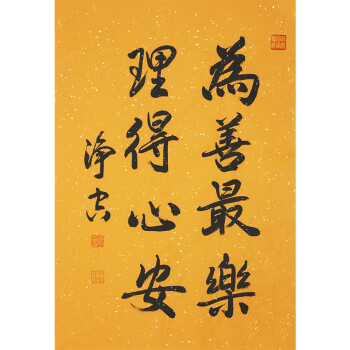 為善最樂
理得心安